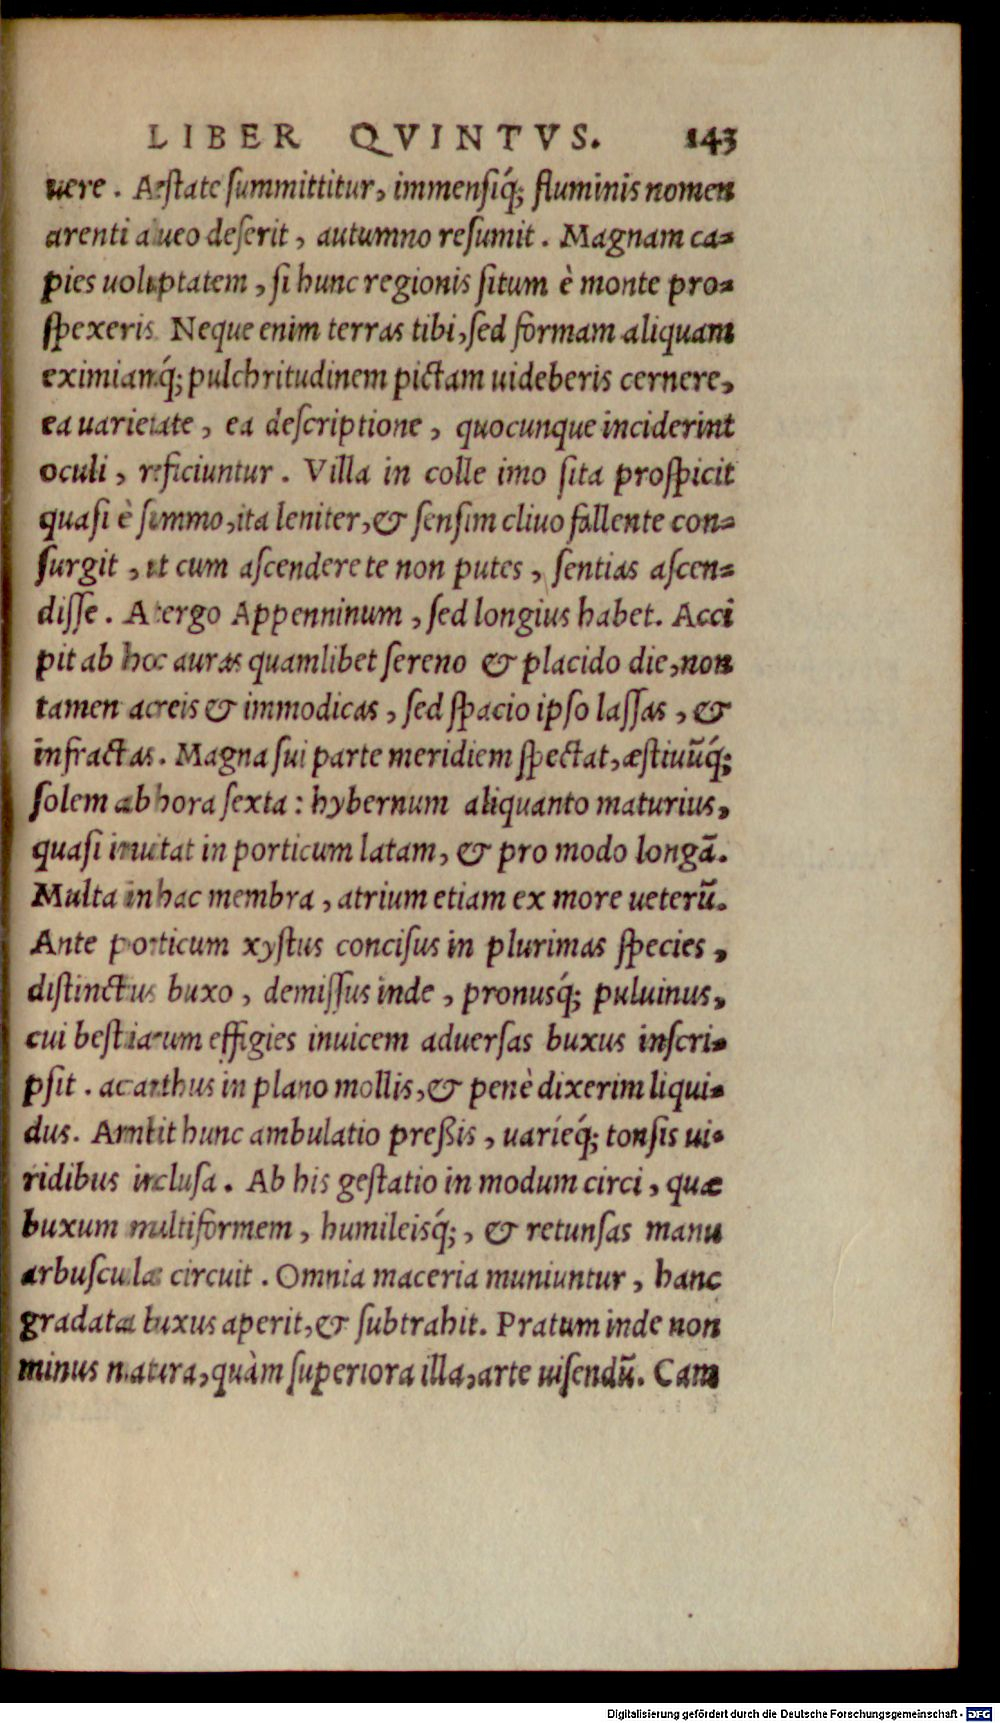 LIBER QVINTVS. 143
uere. Aestate summittitur, immensiq́; fluminis nomen
arenti alueo deserit, autumno resumit. Magnam ca=
pies uoluptatem, si hunc regionis situm è monte pro=
spexeris. Neque enim terras tibi, sed formam aliquam
eximiamq́; pulchritudinem pictam uideberis cernere,
ea uarietate, ea descriptione, quocunque inciderint
oculi, reficiuntur. Villa in colle imo sita prospicit
quasi è summo, ita leniter, & sensim cliuo fallente con=
surgit, ut cum ascendere te non putes, sentias ascen=
disse. A tergo Appenninum, sed longius habet. Acci
pit ab hoc auras quamlibet sereno & placido die, non
tamen acreis & immodicas, sed spacio ipso lassas, &
infractas. Magna sui parte meridiem spectat, æstiuũq́;
solem ab hora sexta: hybernum aliquanto maturius,
quasi inuitat in porticum latam, & pro modo longã.
Multa in hac membra, atrium etiam ex more ueterũ.
Ante porticum xystus concisus in plurimas species,
distinctus buxo, demissus inde, pronusq́; puluinus,
cui bestiarum effigies inuicem aduersas buxus inscri=
psit. acanthus in plano mollis, & penè dixerim liqui=
dus. Ambit hunc ambulatio preßis, uarieq́; tonsis ui=
ridibus inclusa. Ab his gestatio in modum circi, quæ
buxum multiformem, humileisq́;, & retunsas manu
arbusculas circuit. Omnia maceria muniuntur, hanc
gradata buxus aperit, & subtrahit. Pratum inde non
minus natura, quàm superiora illa, arte uisendũ. Cam
Digitalisierung gefördert durch die Deutsche Forschungsgemeinschaft - DFG